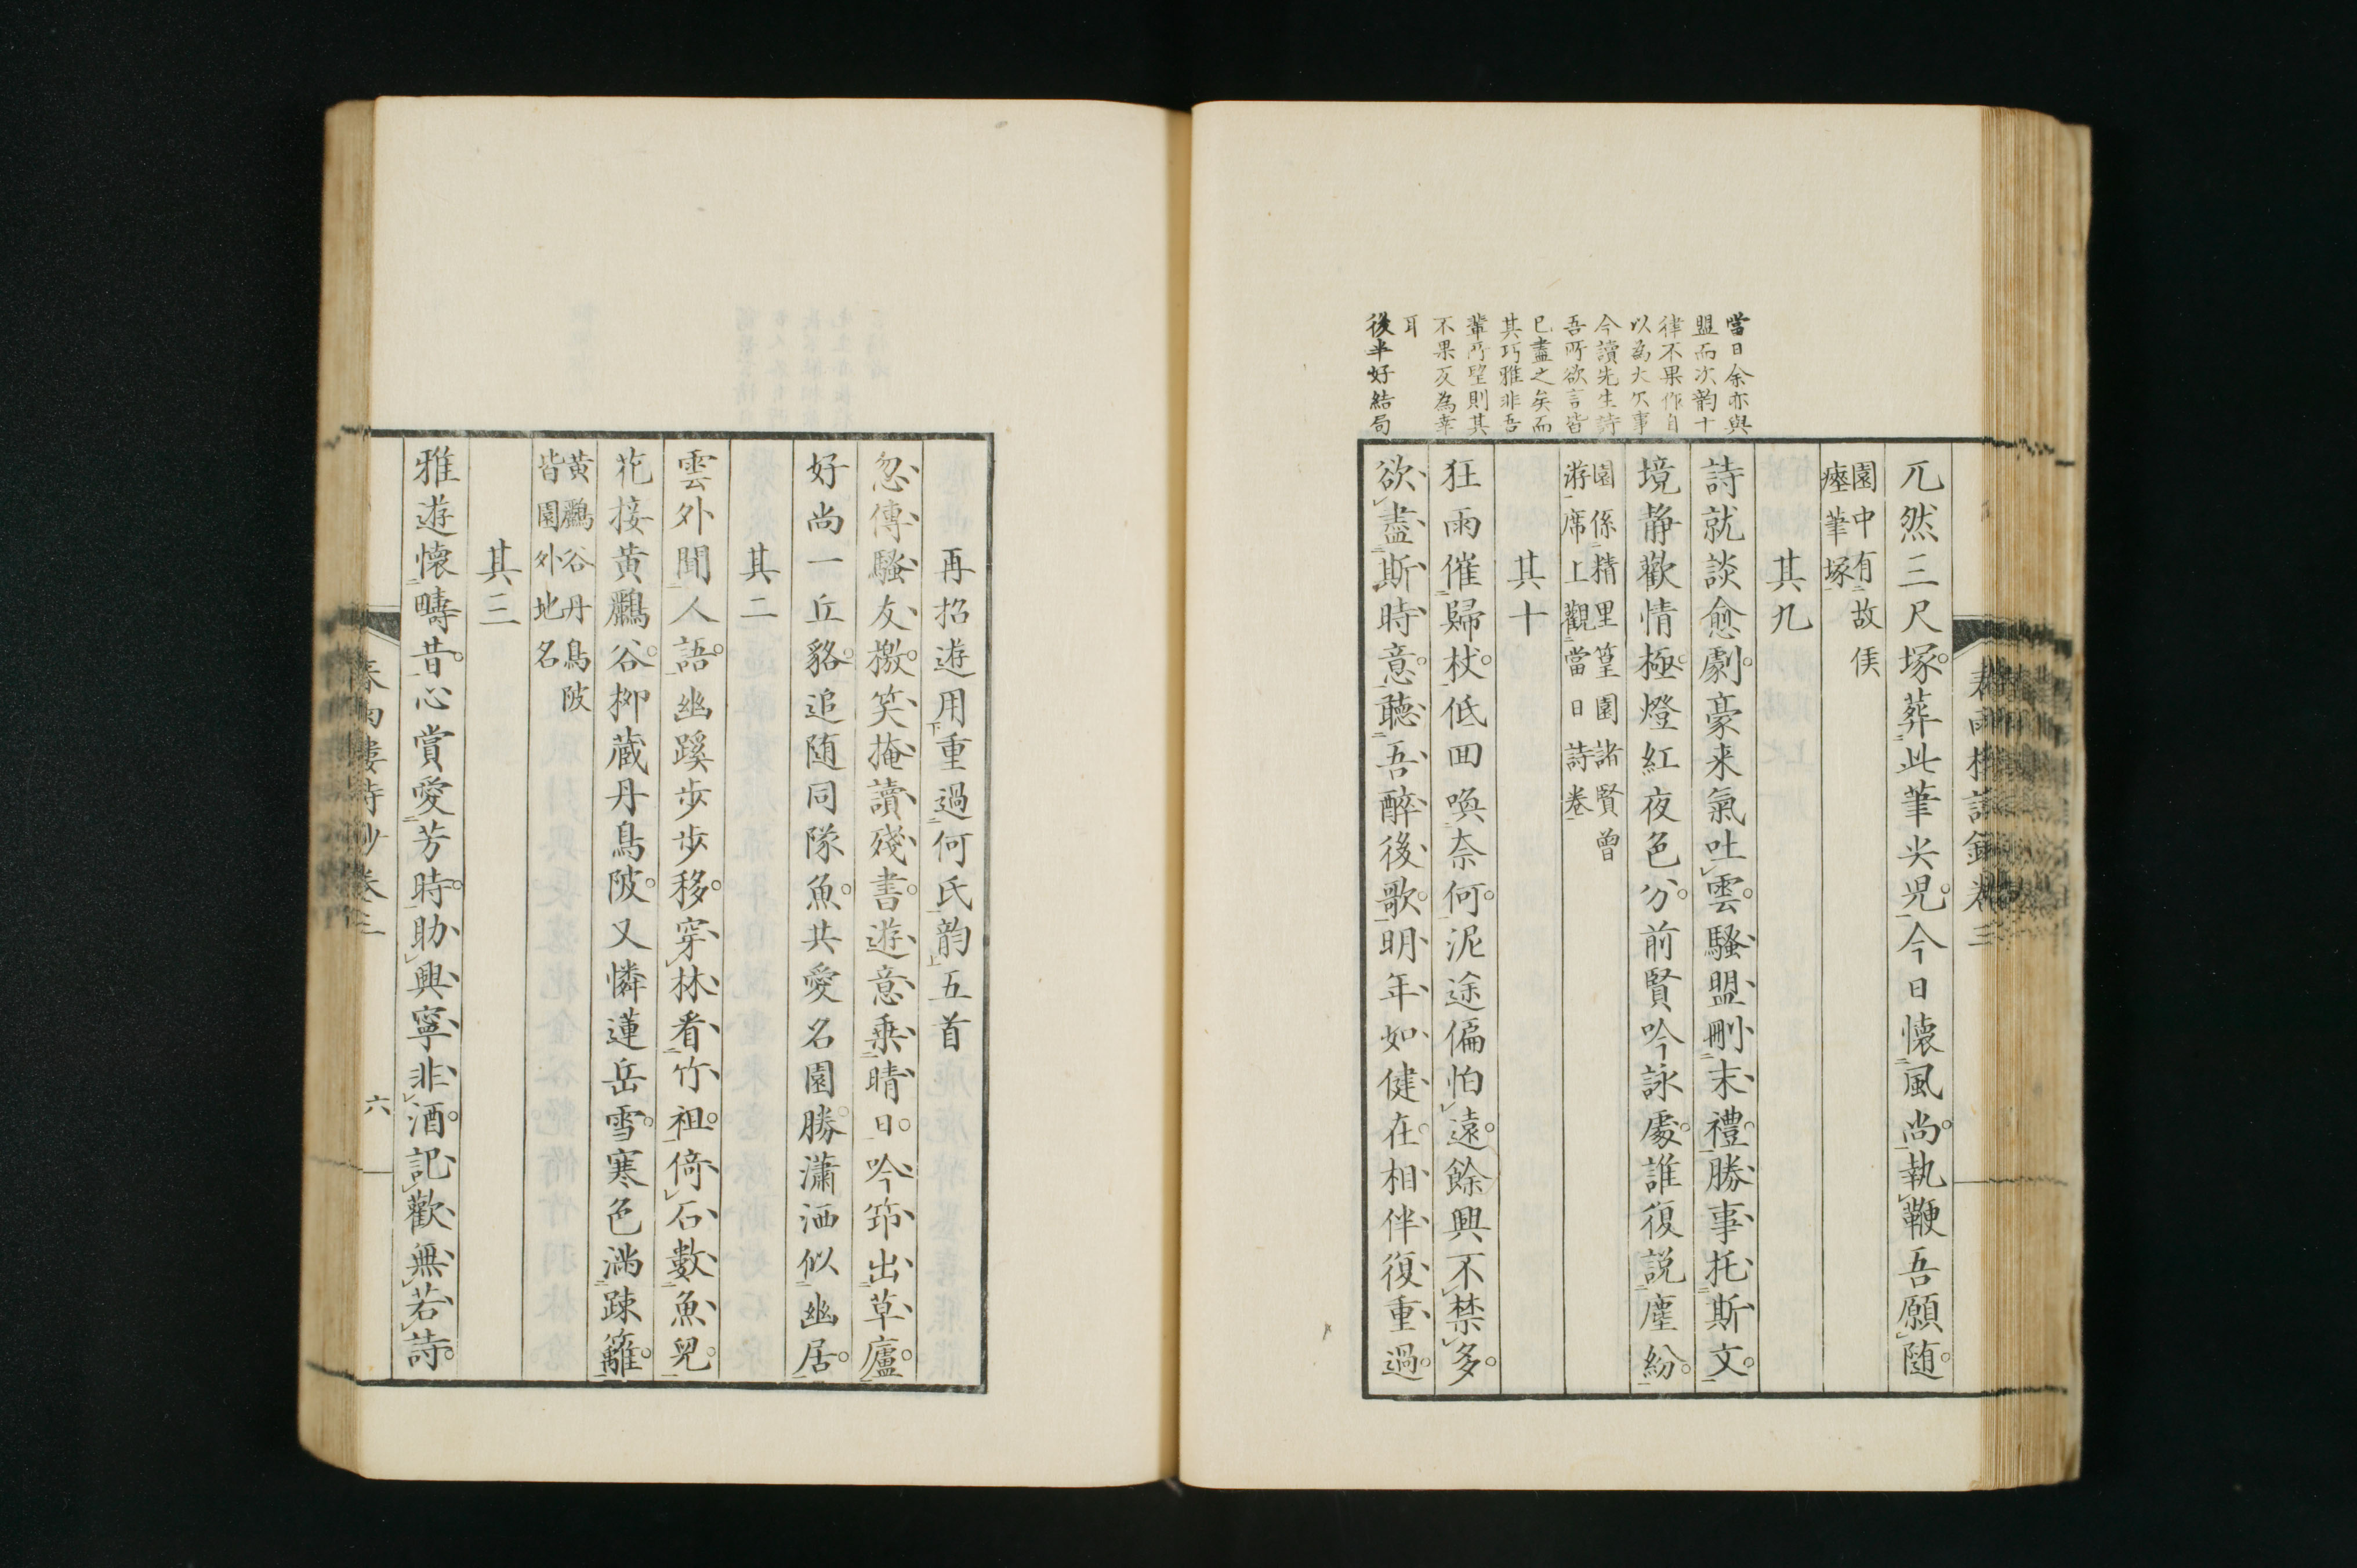 當日余亦與
盟而次韵十
律不果作自
以為大欠事
今讀先生詩
吾所欲言皆
已盡之矣而
其巧雅非吾
輩所望則其
不果反為幸
耳
後半好結局
兀然三尺塚葬此筆尖児今日懐風尚執鞭吾願随
園中有故侯
瘞筆塚
其九
詩就談愈劇豪来氣吐雲騷盟刪末禮勝事托斯文
境静歡情極燈紅夜色分前賢吟詠處誰復説塵紛
園係精里篁園諸賢曽
游席上觀當日詩巻
其十
狂雨催歸杖低回喚奈何泥途偏怕遠餘興不禁多
欲盡斯時意聴吾醉後歌明年如健在相伴復重過
再招遊用重過何氏韵五首
忽傳騷友檄笑掩讀殘書遊意乗晴日吟笻出草廬
好尚一丘貉追随同隊魚共愛名園勝瀟洒似幽居
其二
雲外聞人語幽蹊歩歩移穿林看竹祖倚石數魚兒
花接黄鸝谷柳蔵丹鳥陂又憐蓮岳雪寒色満疎籬
黄鸝谷丹鳥陂
皆園外地名
其三
雅遊懐疇昔心賞愛芳時助興寧非酒記歡無若詩
春雨樓詩鈔巻三
六